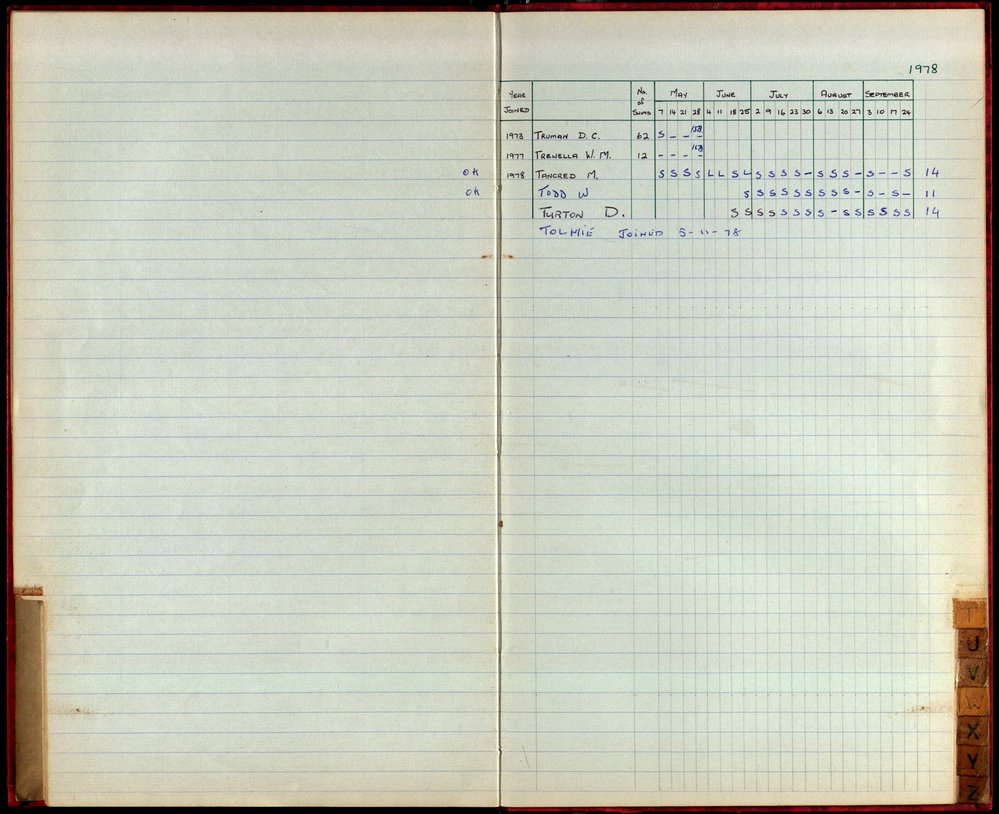 1978
YEAR JOINED No. of SWIMS MAY JUNE JULY AUGUST SEPTEMBER
7 14 21 28 4 11 18 25 2 9 16 23 30 6 13 20 27 3 10 17 24
1973 TRUMAN D. C. 62 S - - -
1977 TREWELLA W. M. 12 - - - -
OK 1978 TANCRED M. S S S S L L S L S S S S - S S S - S - - S 14
OK TODD W S S S S S S S S S - S - S - 11
TURTON D. S S S S S S S S - S S S S S S 14
TOLMIE JOINED 5-11-78
T
U
V
W
X
Y
Z